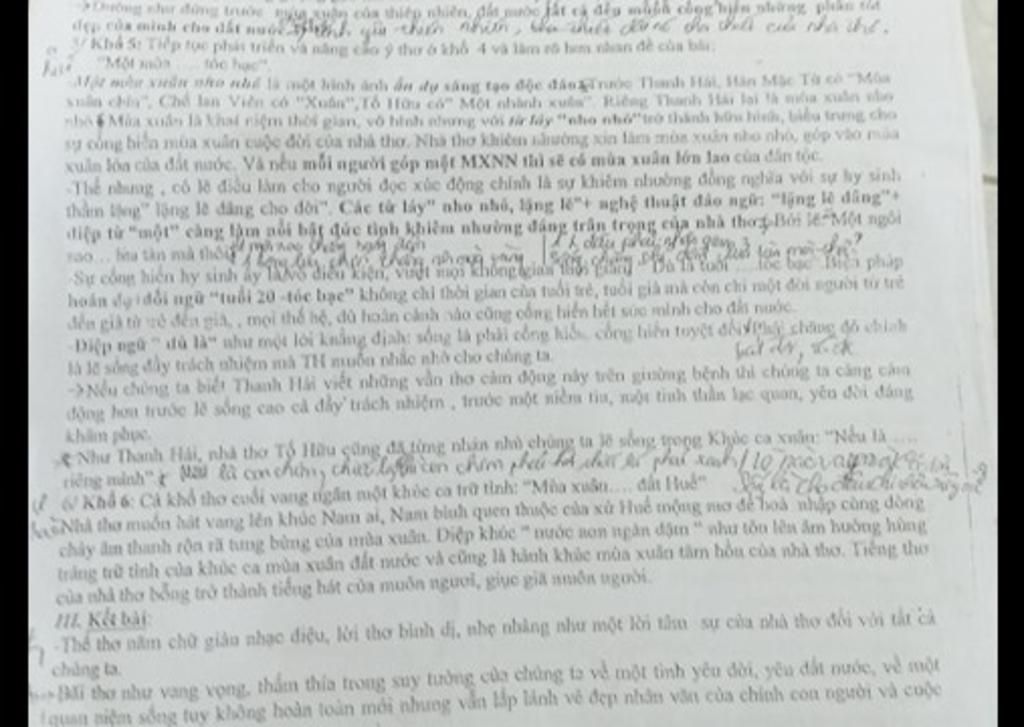 ->Dường như đứng trước mùa xuân của thiên nhiên, đất nước tất cả đều muốn cống hiến những phần tốt
đẹp của mình cho đất nước
5/ Khổ 5: Tiếp tục phát triển và nâng cao ý thơ ở khổ 4 và làm rõ hơn nhan đề của bài:
"Một mùa .... tóc bạc".
-Một mùa xuân nho nhỏ là một hình ảnh ẩn dụ sáng tạo độc đáo. Trước Thanh Hải, Hàn Mặc Tử có "Mùa
xuân chín", Chế lan Viên có "Xuân",Tố Hữu có" Một nhành xuân". Riêng Thanh Hải lại là mùa xuân nho
nhỏ. Mùa xuân là khái niệm thời gian, vô hình nhưng với từ láy "nho nhỏ"trở thành hữu hình, biểu trưng cho
sự cống hiến mùa xuân cuộc đời của nhà thơ. Nhà thơ khiêm nhường xin làm mùa xuân nho nhỏ, góp vào mùa
xuân lớn của đất nước. Và nếu mỗi người góp một MXNN thì sẽ có mùa xuân lớn lao của dân tộc.
-Thế nhưng , có lẽ điều làm cho người đọc xúc động chính là sự khiêm nhường đồng nghĩa với sự hy sinh
thầm lặng" lặng lẽ dâng cho đời". Các từ láy" nho nhỏ, lặng lẽ"+ nghệ thuật đảo ngữ: "lặng lẽ dâng"+
điệp từ "một" càng làm nổi bật đức tính khiêm nhường đáng trân trọng của nhà thơ. Bởi lẽ:"Một ngôi
sao... lửa tàn mà thôi
-Sự cống hiến hy sinh ấy là vô điều kiện, vượt mọi không gian thời giang " Dù là tuổi .....tóc bạc".Biện pháp
hoán dụ+đối ngữ "tuổi 20 -tóc bạc" không chỉ thời gian của tuổi trẻ, tuổi già mà còn chỉ một đời người từ trẻ
đến già từ trẻ đến già, , mọi thế hệ, dù hoàn cảnh nào cũng cống hiến hết sức mình cho đất nước.
-Điệp ngữ " dù là" như một lời khẳng định: sống là phải cống hiến, cống hiến tuyệt đối. Phải chăng đó chính
là lẽ sống đầy trách nhiệm mà TH muốn nhắc nhở cho chúng ta.
->Nếu chúng ta biết Thanh Hải viết những vần thơ cảm động này trên giường bệnh thì chúng ta càng cảm
động hơn trước lẽ sống cao cả đầy trách nhiệm , trước một niềm tin, một tinh thần lạc quan, yêu đời đáng
khâm phục.
Như Thanh Hải, nhà thơ Tố Hữu cũng đã từng nhắn nhủ chúng ta lẽ sống trong Khúc ca xuân: "Nếu là .....
riêng mình" Nếu là con chim, chiếc lá con chim phải hót chiếc lá phải xanh
6/ Khổ 6: Cả khổ thơ cuối vang ngân một khúc ca trữ tình: "Mùa xuân.... đất Huế"
-Nhà thơ muốn hát vang lên khúc Nam ai, Nam bình quen thuộc của xứ Huế mộng mơ để hoà nhập cùng dòng
chảy âm thanh rộn rã tưng bừng của mùa xuân. Điệp khúc " nước non ngàn dặm " như tôn lên âm hưởng hùng
tráng trữ tình của khúc ca mùa xuân đất nước và cũng là hành khúc mùa xuân tâm hồn của nhà thơ. Tiếng thơ
của nhà thơ bỗng trở thành tiếng hát của muôn người, giục giã muôn người.
III. Kết bài:
-Thể thơ năm chữ giàu nhạc điệu, lời thơ bình dị, nhẹ nhàng như một lời tâm sự của nhà thơ đối với tất cả
chúng ta.
->Bài thơ như vang vọng, thấm thía trong suy tưởng của chúng ta về một tình yêu đời, yêu đất nước, về một
quan niệm sống tuy không hoàn toàn mới nhưng vẫn lấp lánh vẻ đẹp nhân văn của chính con người và cuộc